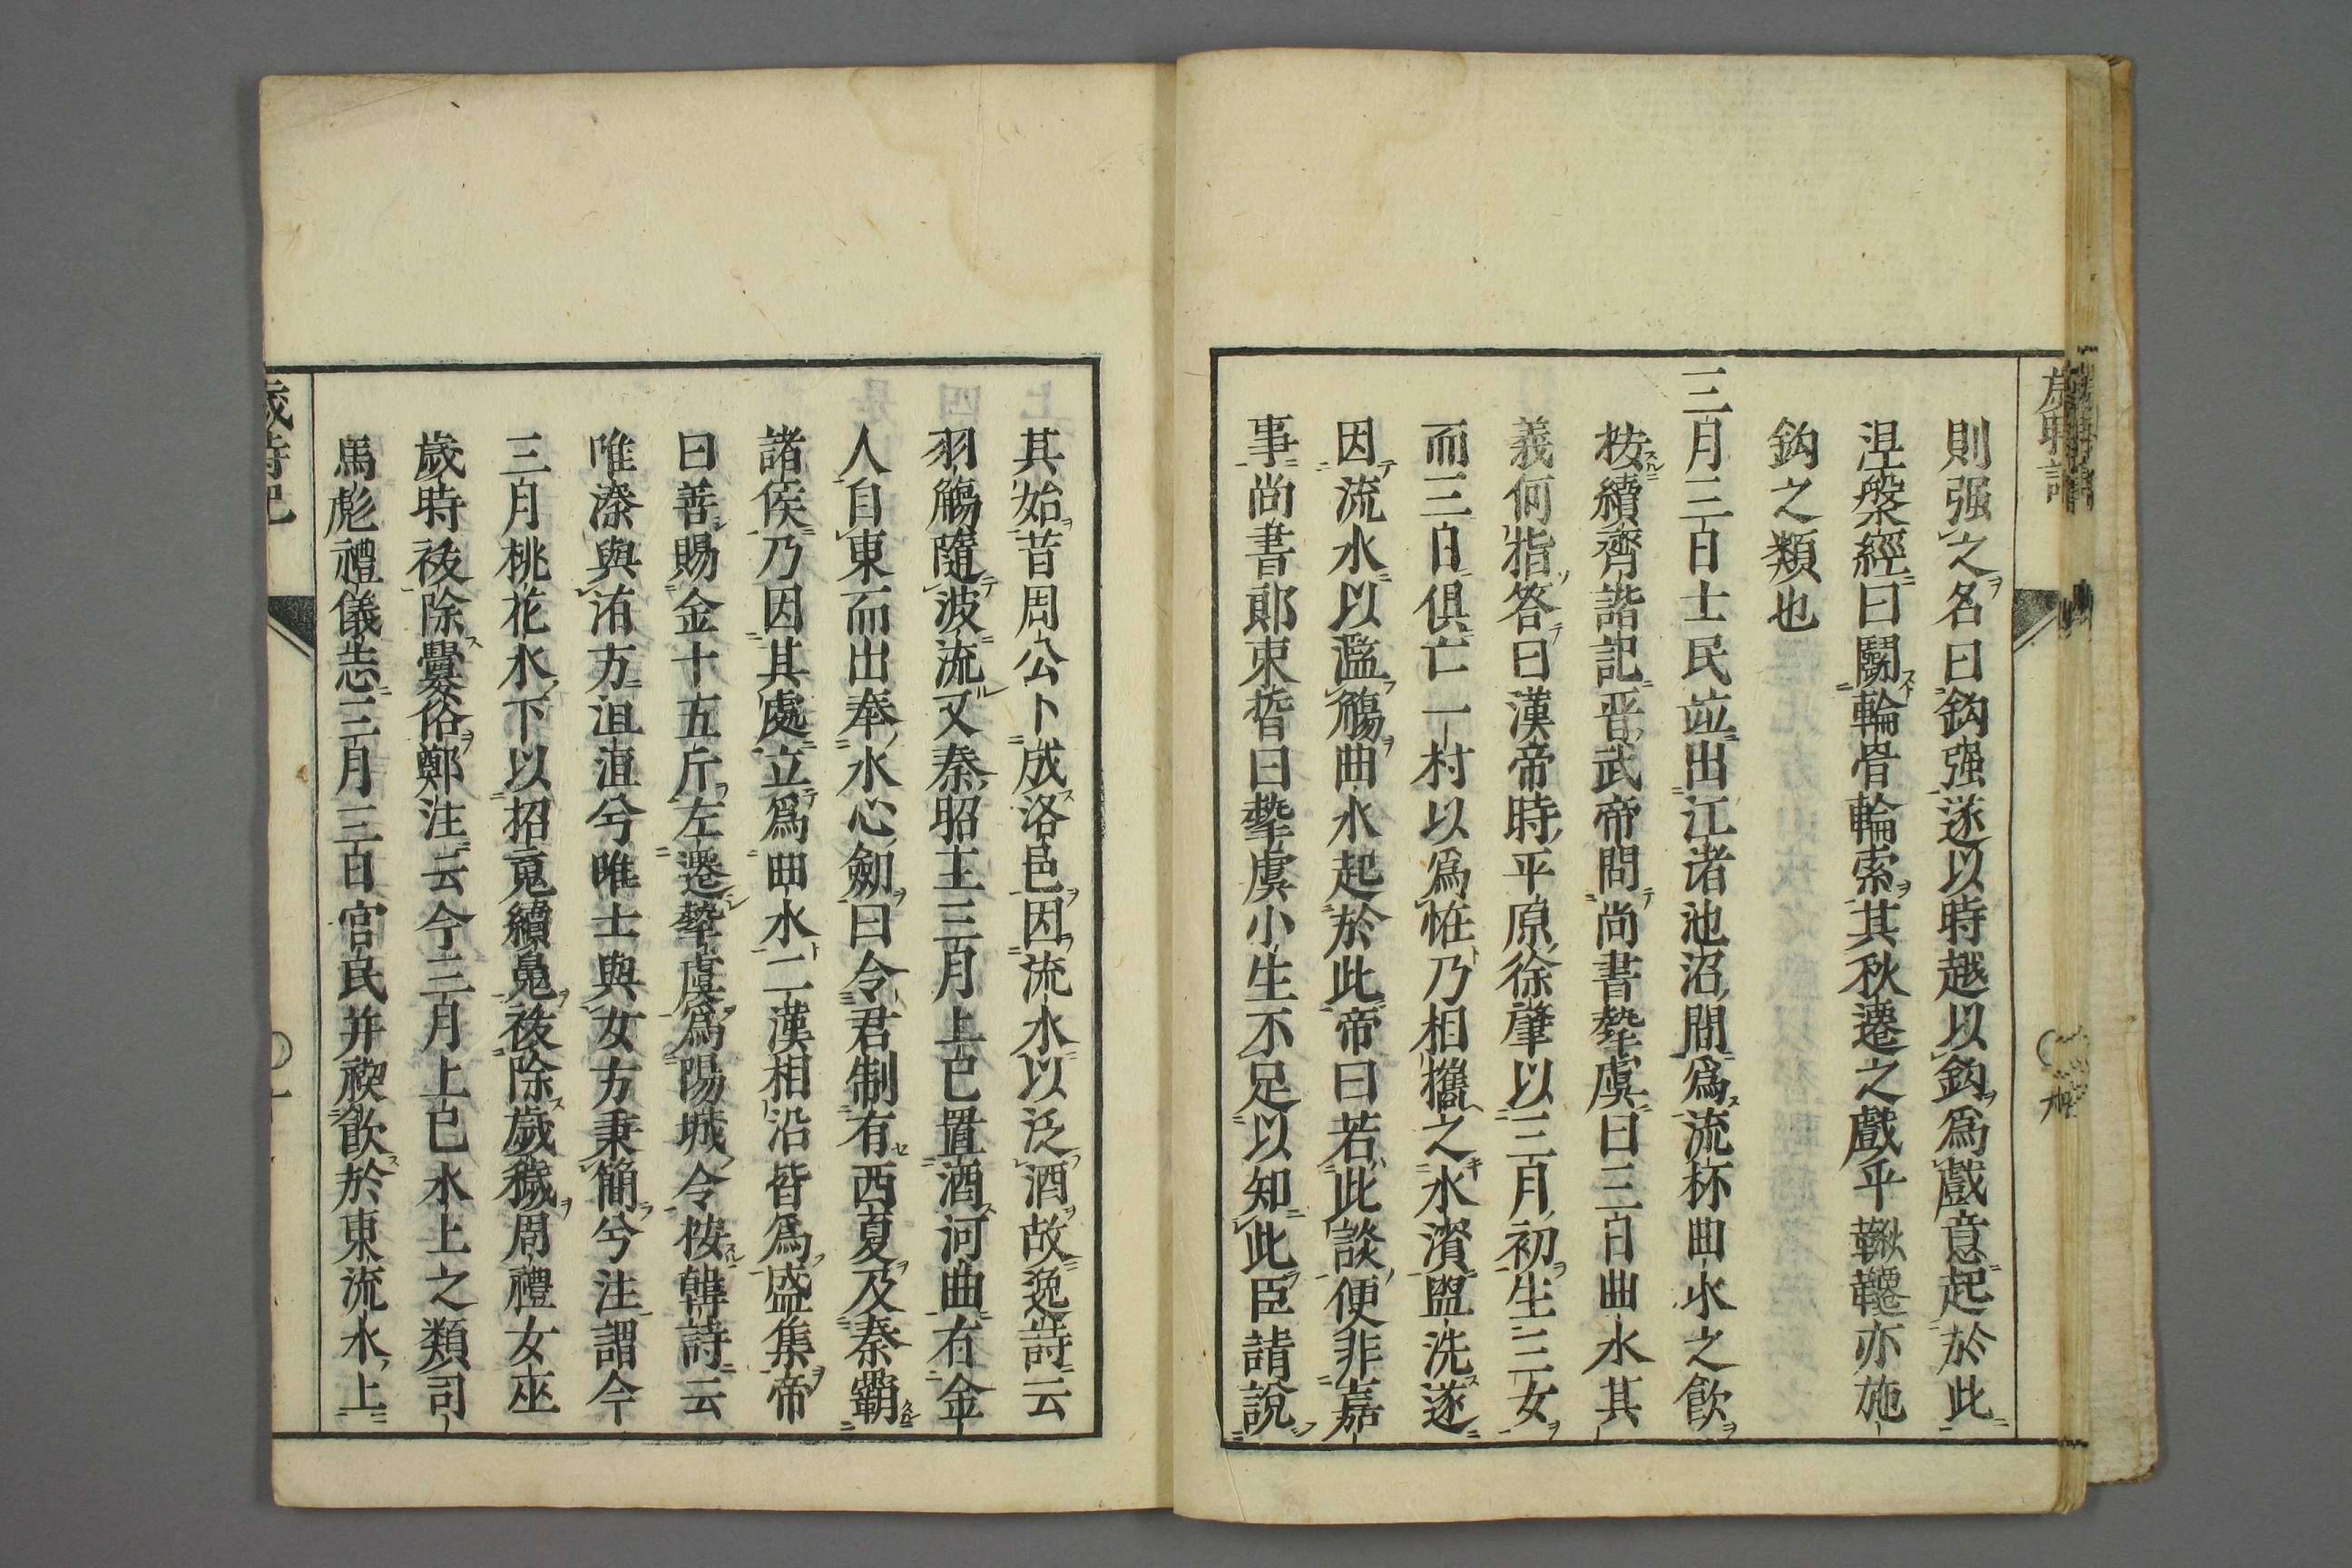 則强之名曰鈎强遂以時越以鈎爲戲意起於此
涅槃經曰鬪輪骨輪索其秋遷之戲乎鞦韆亦施
鈎之類也
三月三日士民竝出江渚池沼間爲流杯曲水之飮
桉續齊諧記晋武帝問尚書摯虞曰三日曲水其
義何指答曰漢帝時平原徐肇以三月初生三女
而三日俱亡一村以爲恠乃相攜之水濱盥洗遂
因流水以濫觴曲水起於此帝曰若此談便非嘉
事尚書郞束晳曰摯虞小生不足以知此臣請說
其始昔周公卜成洛邑因流水以泛酒故逸詩云
羽觴隨波流又秦昭王三月上巳置酒河曲有金
人自東而出奉水心劒曰令君制有西夏及秦覇
諸侯乃因其處立爲曲水二漢相沿皆爲盛集帝
曰善賜金十五斤左遷摯虞爲陽城令桉韓詩云
唯溱與洧方洹洹兮唯士與女方秉蕳兮注謂今
三月桃花水下以招䰟續魄祓除歲穢周禮女巫
歲時祓除釁俗鄭注云今三月上巳水上之類司
馬彪禮儀志三月三日官民并禊飮於東流水上
歲時記